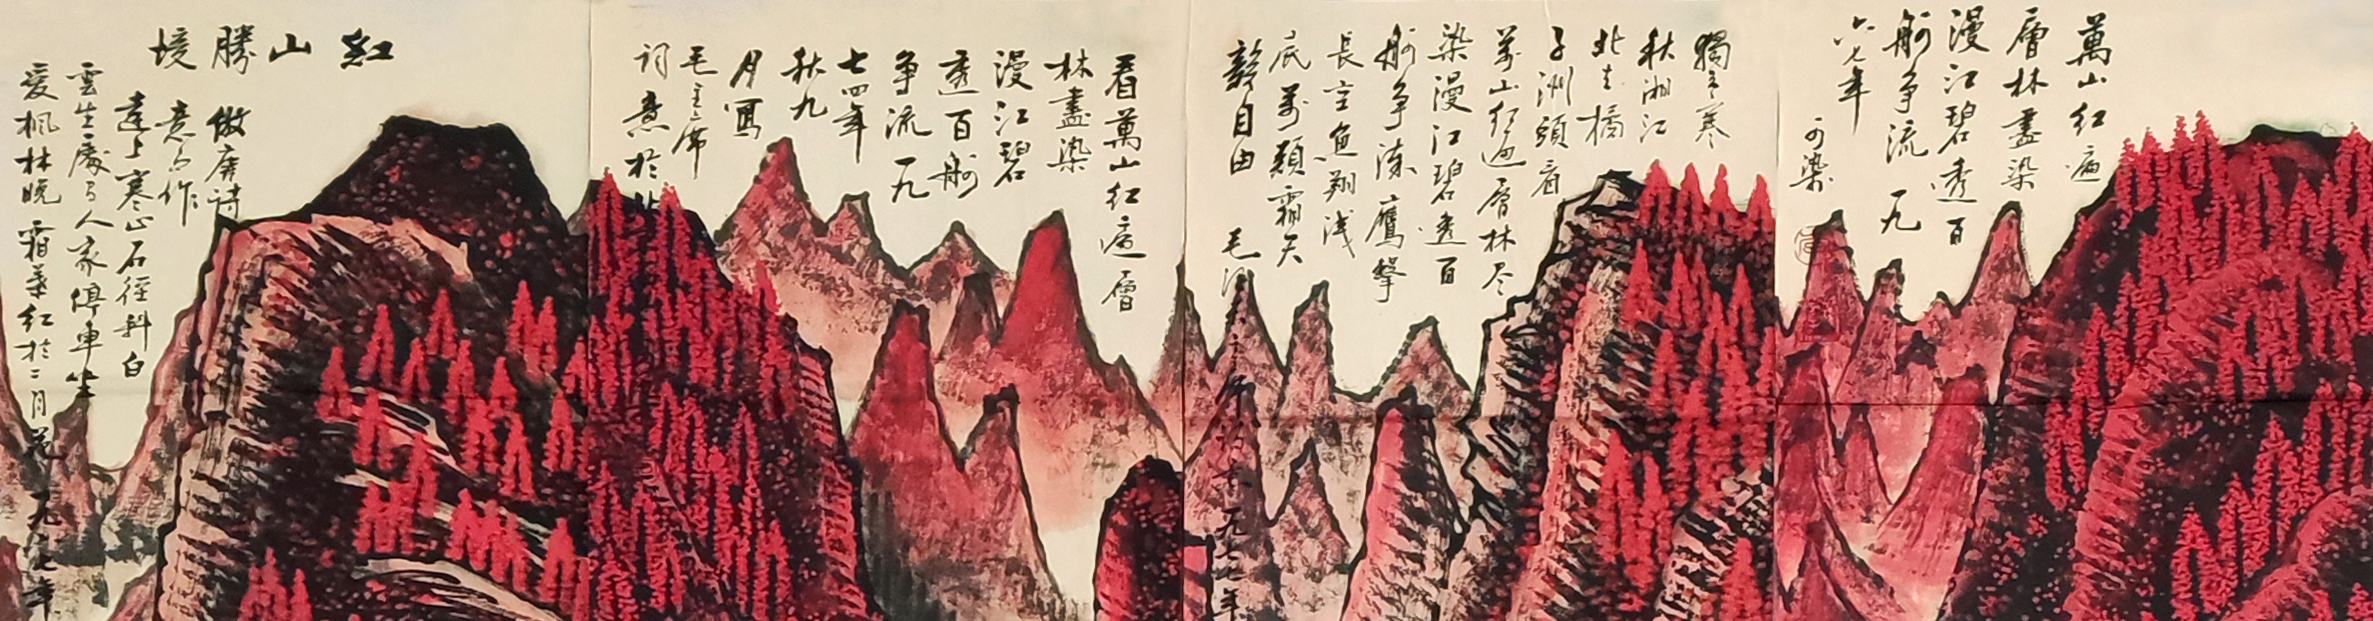 萬山红遍
層林盡染
漫江碧透百
舸争流 一九
六七年
可染
獨立寒
秋湘江
北去橘
子洲頭看
萬山红遍層林尽
染漫江碧透百
舸争流鹰擊
長空鱼翔浅
底萬類霜天
競自由 毛泽 主席 一九七 年
看萬山红遍層
林盡染
漫江碧
透百舸
争流一九
七四年
秋九
月寫
毛主席
词意於北
紅山勝境
倣唐诗
意而作
遠上寒山石径斜白
雲生處有人家停車坐
爱枫林晚霜葉红於二月花 一九八七年